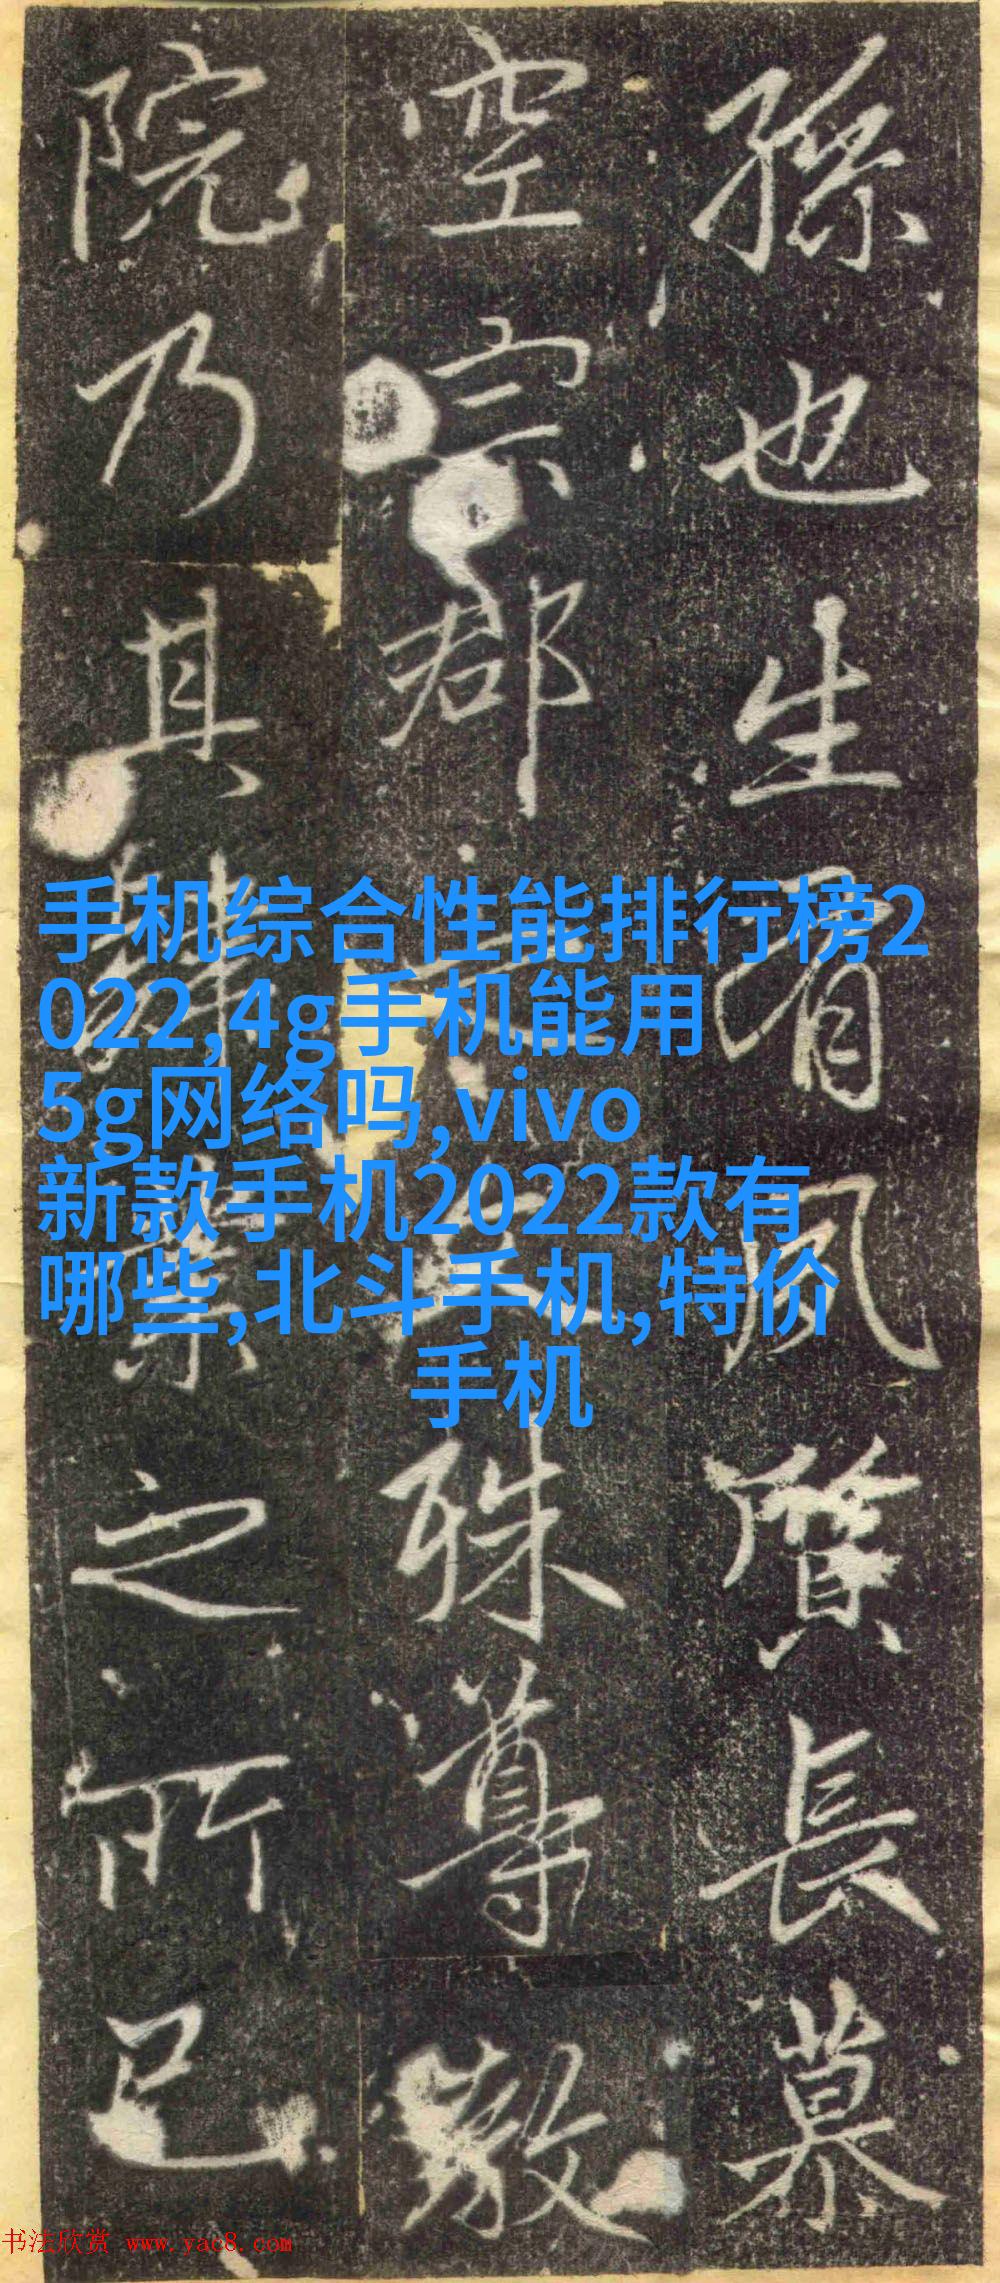 孫也生有風質長慕
空宗郡 殊尊敬
院乃其肄業之所已
手机综合性能排行榜2
022,4g手机能用
5g网络吗,vivo
新款手机2022款有
哪些,北斗手机,特价
手机
书法欣赏 www.yac8.com